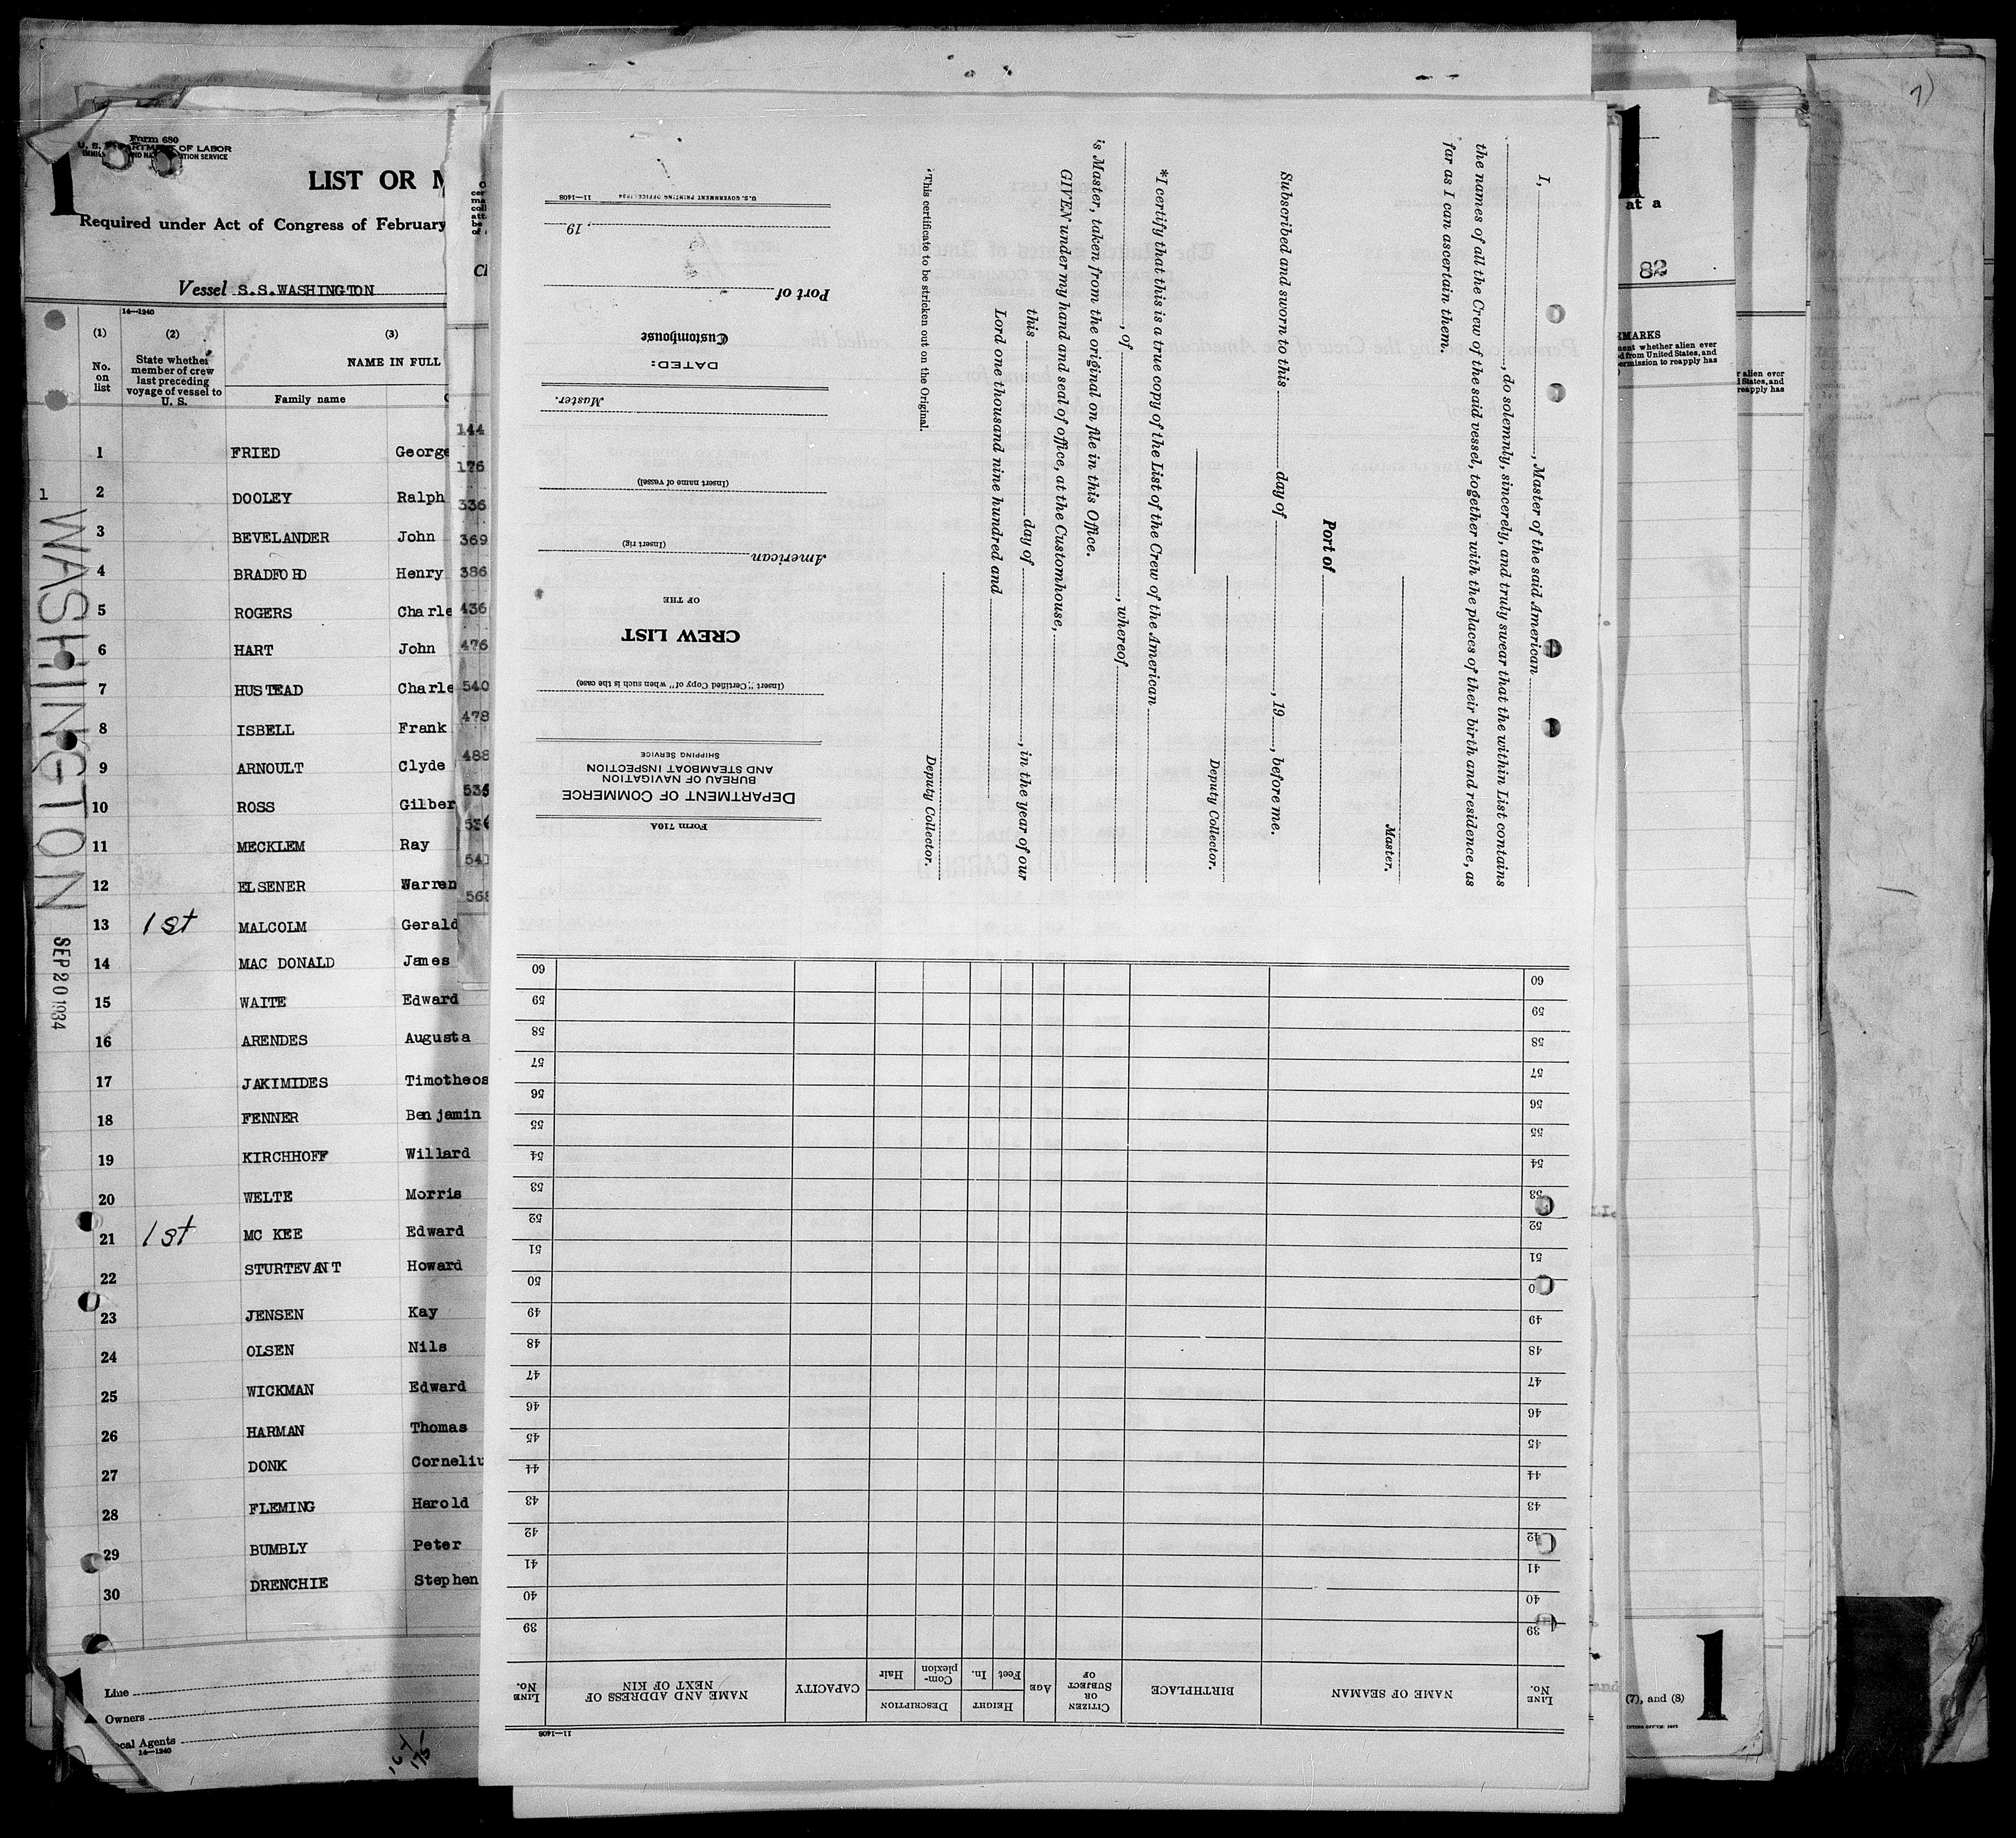 1
Form 680
U. S. DEPARTMENT OF LABOR
LIST OR
Required under Act of Congress of February
Vessel S.S.WASHINGTON
14—1240
(1) (2) (3)
No. on list
State whether member of crew last preceding voyage of vessel to U. S.
NAME IN FULL
Family name
1 FRIED George
1 2 DOOLEY Ralph
3 BEVELANDER John
4 BRADFORD Henry
5 ROGERS Charle
6 HART John
7 HUSTEAD Charle
8 ISBELL Frank
9 ARNOULT Clyde
10 ROSS Gilber
11 MECKLEM Ray
12 ELSENER Warren
13 1st MALCOLM Gerald
14 MAC DONALD James
15 WAITE Edward
16 ARENDES Augusta
17 JAKIMIDES Timotheos
18 FENNER Benjamin
19 KIRCHHOFF Willard
20 WELTE Morris
21 1st MC KEE Edward
22 STURTEVANT Howard
23 JENSEN Kay
24 OLSEN Nils
25 WICKMAN Edward
26 HARMAN Thomas
27 DONK Corneliu
28 FLEMING Harold
29 BUMBLY Peter
30 DRENCHIE Stephen
WASHINGTON
SEP 20 1934
Line
Owners
Local Agents
14—1240
144
176
336
369
386
436
476
540
478
488
I, , Master of the said American
, do solemnly, sincerely, and truly swear that the within List contains
the names of all the Crew of the said vessel, together with the places of their birth and residence, as
far as I can ascertain them.
Master.
Port of
Subscribed and sworn to this day of , 19 , before me.
Deputy Collector.
*I certify that this is a true copy of the List of the Crew of the American
, of , whereof
is Master, taken from the original on file in this Office.
GIVEN under my hand and seal of office, at the Customhouse,
this day of , in the year of our
Lord one thousand nine hundred and
Deputy Collector.
*This certificate to be stricken out on the Original.
Form 710A
DEPARTMENT OF COMMERCE
BUREAU OF NAVIGATION
AND STEAMBOAT INSPECTION
SHIPPING SERVICE
(Insert "Certified Copy of" when such is the case)
CREW LIST
OF THE
American
(Insert rig)
(Insert name of vessel)
Master.
DATED:
Customhouse
Port of
, 19
U.S. GOVERNMENT PRINTING OFFICE: 1934 11—1408
11—1408
LINE No.
NAME OF SEAMAN
BIRTHPLACE
CITIZEN OR SUBJECT OF
AGE
HEIGHT
Feet In.
DESCRIPTION
Complexion Hair
CAPACITY
NAME AND ADDRESS OF NEXT OF KIN
LINE No.
39 39
40 40
41 41
42 42
43 43
44 44
45 45
46 46
47 47
48 48
49 49
50
51 51
52 52
53 53
54 54
55 55
56 56
57 57
58 58
59 59
60 60
1
at a
82
(7), and (8)
1